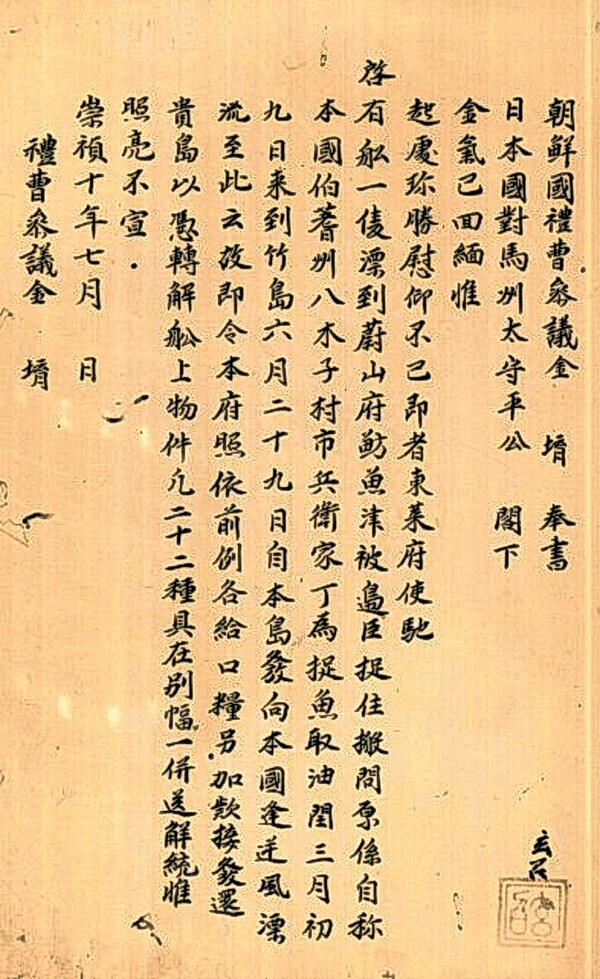 朝鮮國禮曹參議金 㙔 奉書
日本國對馬州太守平公 閤下
金氣已回緬惟
起處珎勝慰仰不已卽者東萊府使馳
啓有舩一隻漂到蔚山府魴魚津被邉臣捉住擬問原係自称
本國伯耆州八木子村市兵衛家丁爲捉魚取油閏三月初
九日来到竹島六月二十九日自本島發向本國逢逆風漂
流至此云故卽令本府照依前例各給口糧另加款接發還
貴島以憑轉解舩上物件凢二十二種具在别幅一併送解統惟
照亮不宣
崇禎十年七月 日
禮曹參議金 㙔